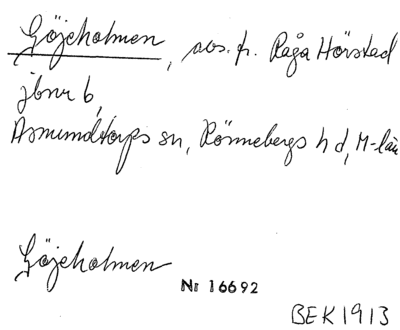 Göjeholmen, avs. fr. Råga Hörstad
jbnr 6,
Asmundtorps sn, Rönnebergs hd, M-län
Göjeholmen
Nr 16692
BEK 1913